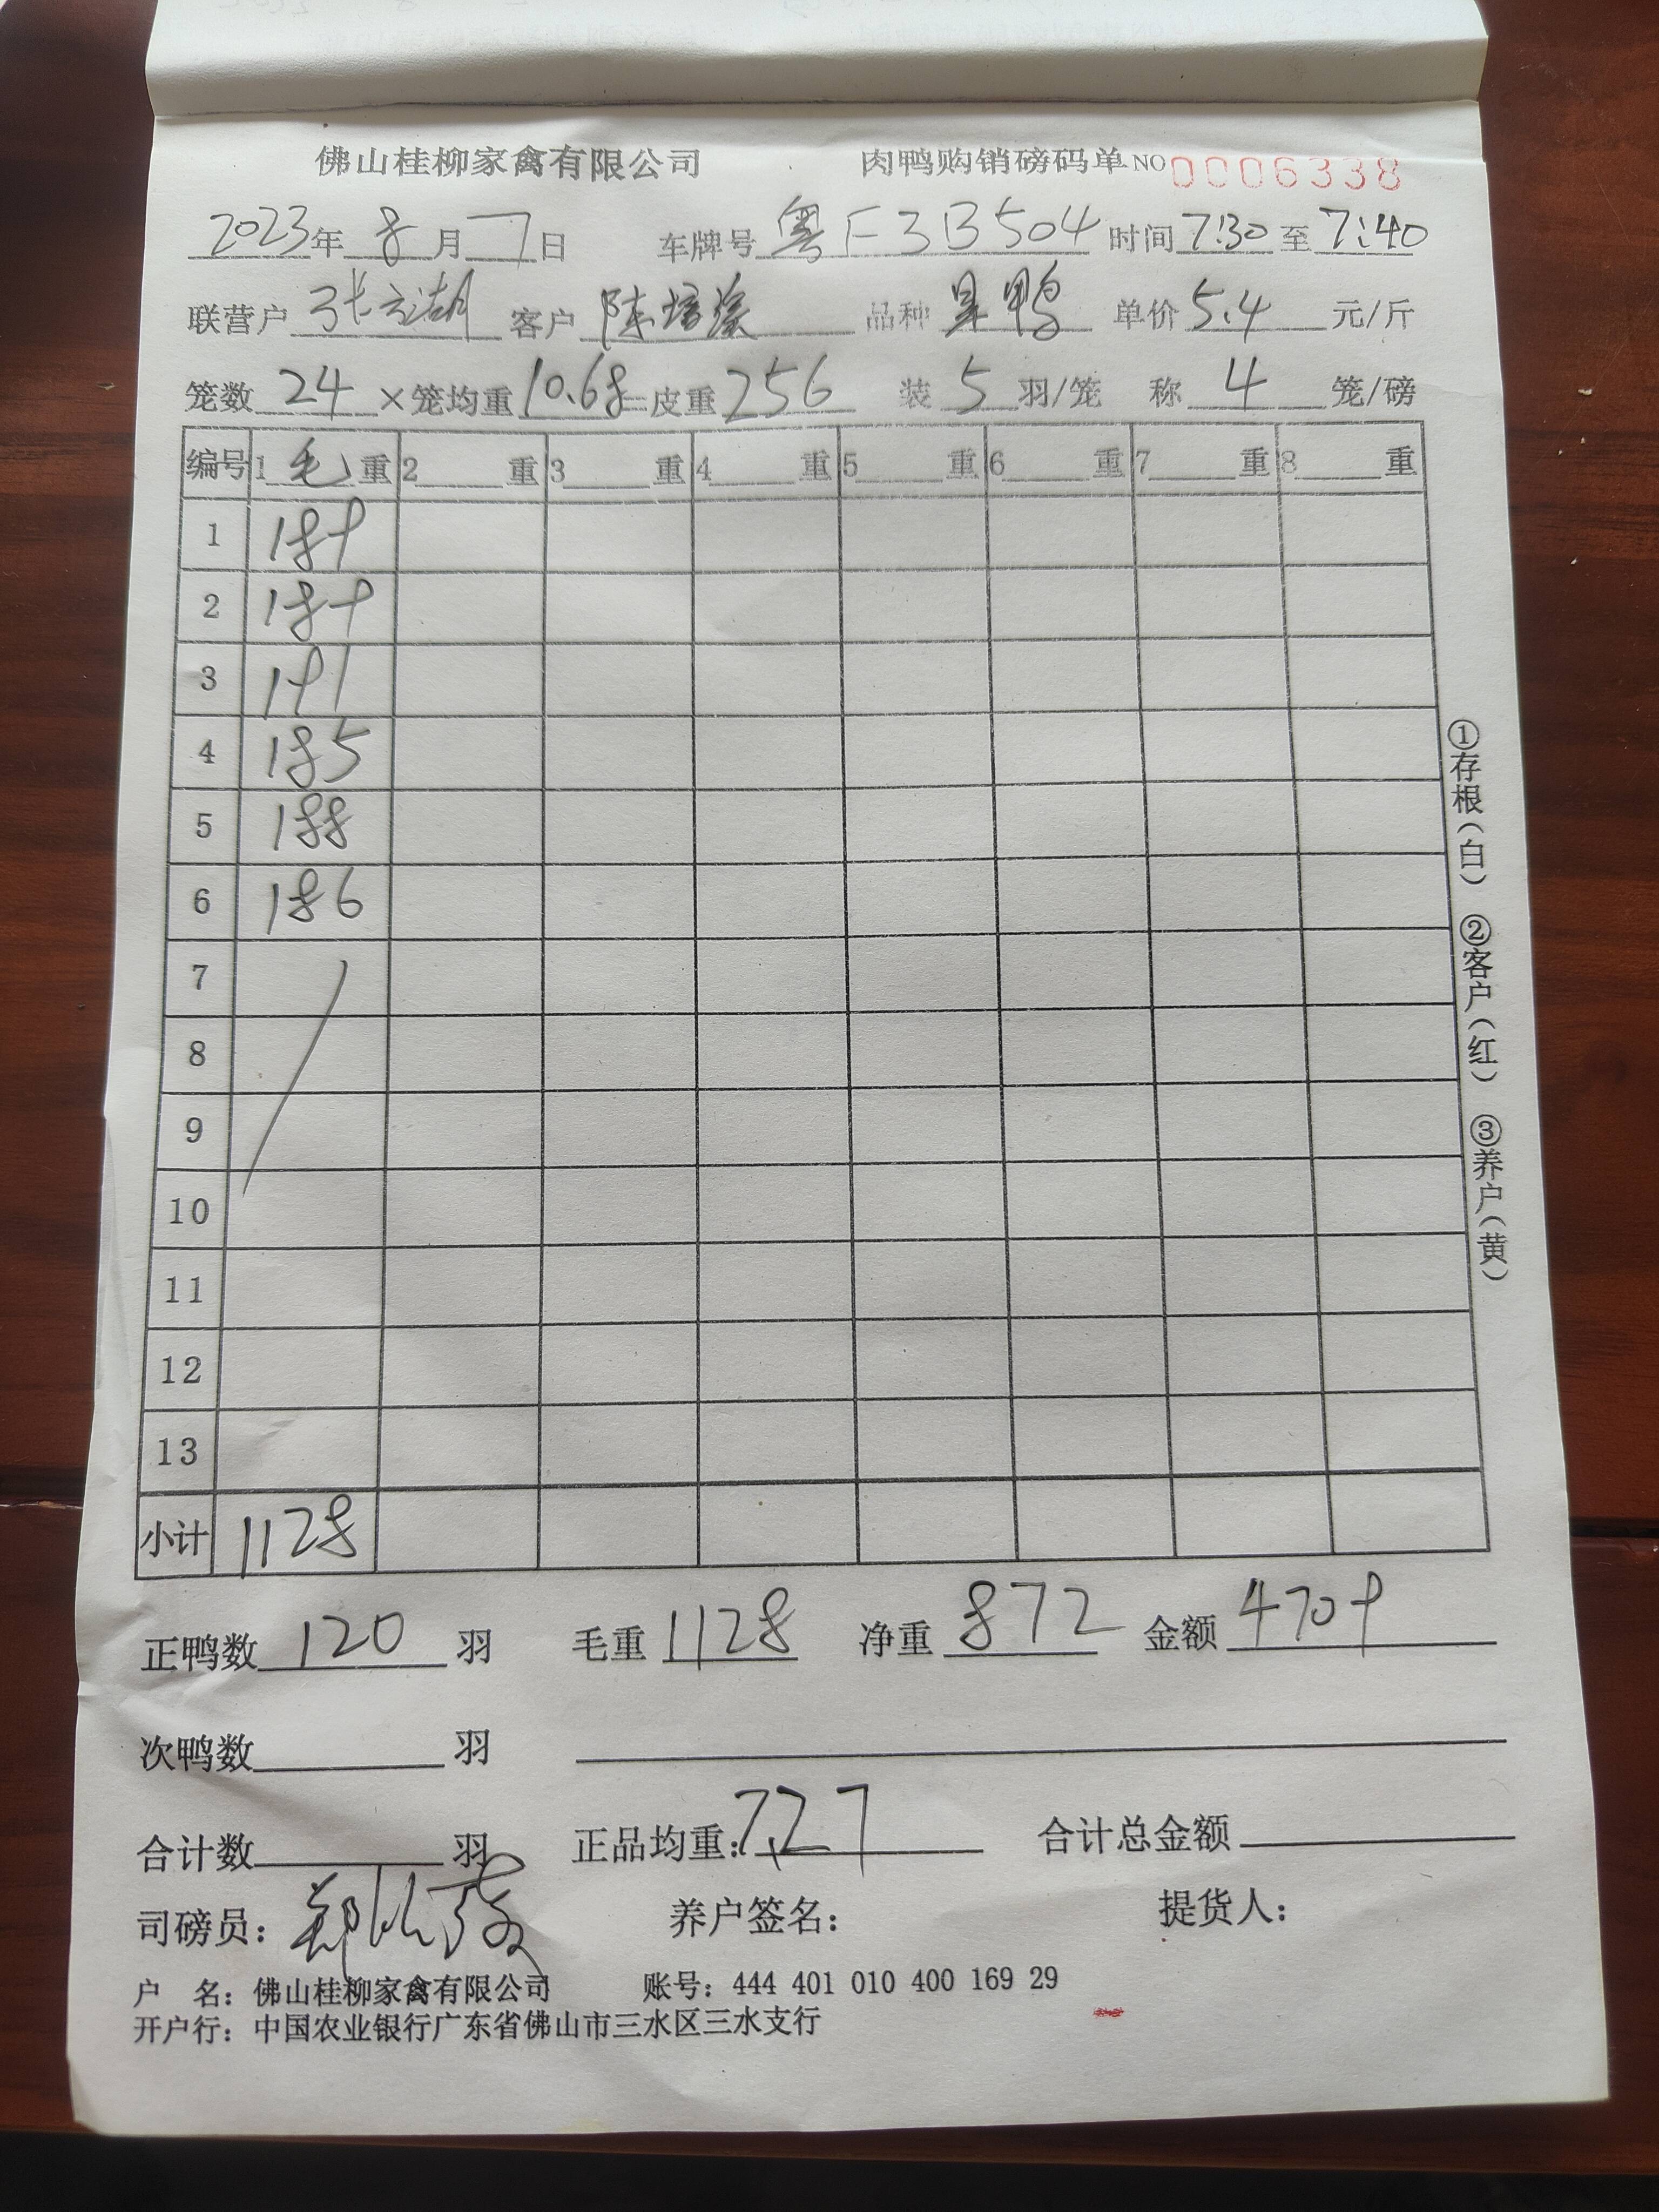 佛山桂柳家禽有限公司 肉鸭购销磅码单 NO 0006338
2023年 8月 7日 车牌号 粤F3B504 时间 7:30 至 7:40
联营户 张立湖 客户 陈 品种 鸭 单价 5.4 元/斤
笼数 24 ×笼均重 10.68 =皮重 256 装 5 羽/笼 称 4 笼/磅
编号 1 毛 重 2 重 3 重 4 重 5 重 6 重 7 重 8 重
1 189
2 189
3 191
4 185
5 188
6 186
7
8
9
10
11
12
13
小计 1128
正鸭数 120 羽 毛重 1128 净重 872 金额 4709
次鸭数 羽
合计数 羽 正品均重: 7.27 合计总金额
司磅员: 郑 养户签名: 提货人:
户 名: 佛山桂柳家禽有限公司 账号: 444 401 010 400 169 29
开户行: 中国农业银行广东省佛山市三水区三水支行
①存根(白) ②客户(红) ③养户(黄)